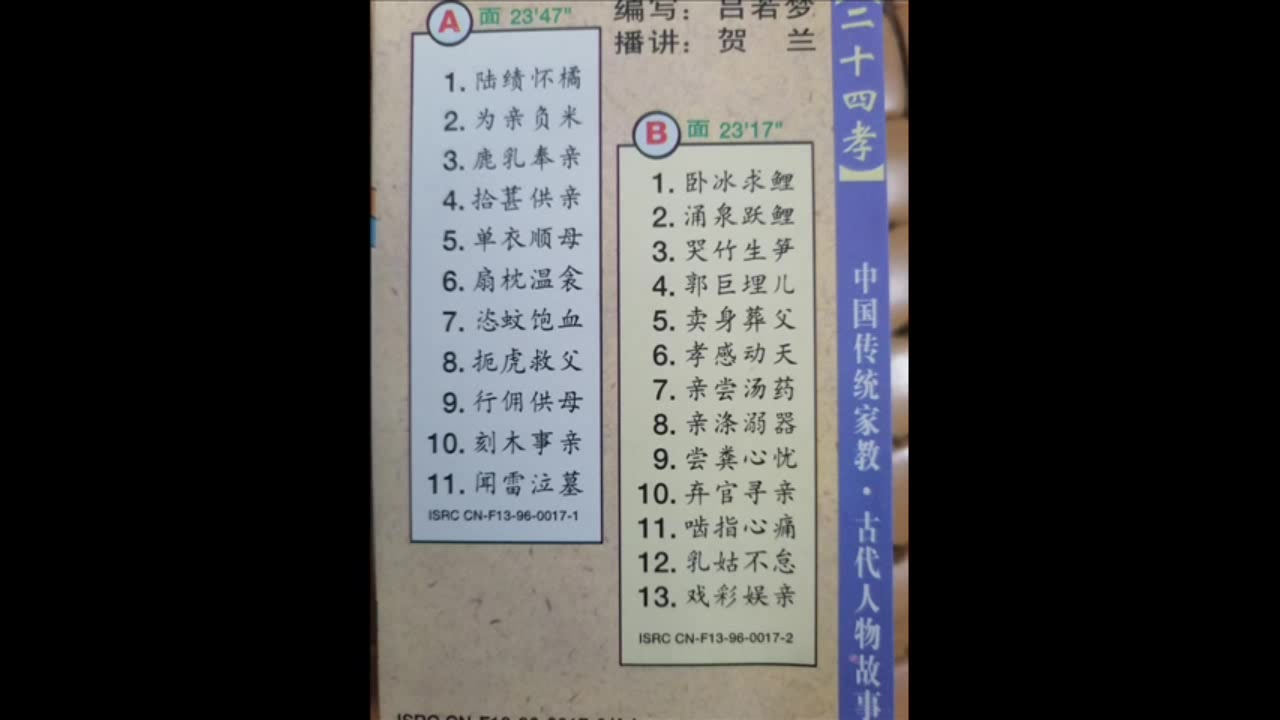 编写：吕若梦
播讲：贺 兰
A 面 23'47"
1. 陆绩怀橘
2. 为亲负米
3. 鹿乳奉亲
4. 拾葚供亲
5. 单衣顺母
6. 扇枕温衾
7. 恣蚊饱血
8. 扼虎救父
9. 行佣供母
10. 刻木事亲
11. 闻雷泣墓
ISRC CN-F13-96-0017-1
B 面 23'17"
1. 卧冰求鲤
2. 涌泉跃鲤
3. 哭竹生笋
4. 郭巨埋儿
5. 卖身葬父
6. 孝感动天
7. 亲尝汤药
8. 亲涤溺器
9. 尝粪心忧
10. 弃官寻亲
11. 啮指心痛
12. 乳姑不怠
13. 戏彩娱亲
ISRC CN-F13-96-0017-2
【二十四孝】
中国传统家教·古代人物故事